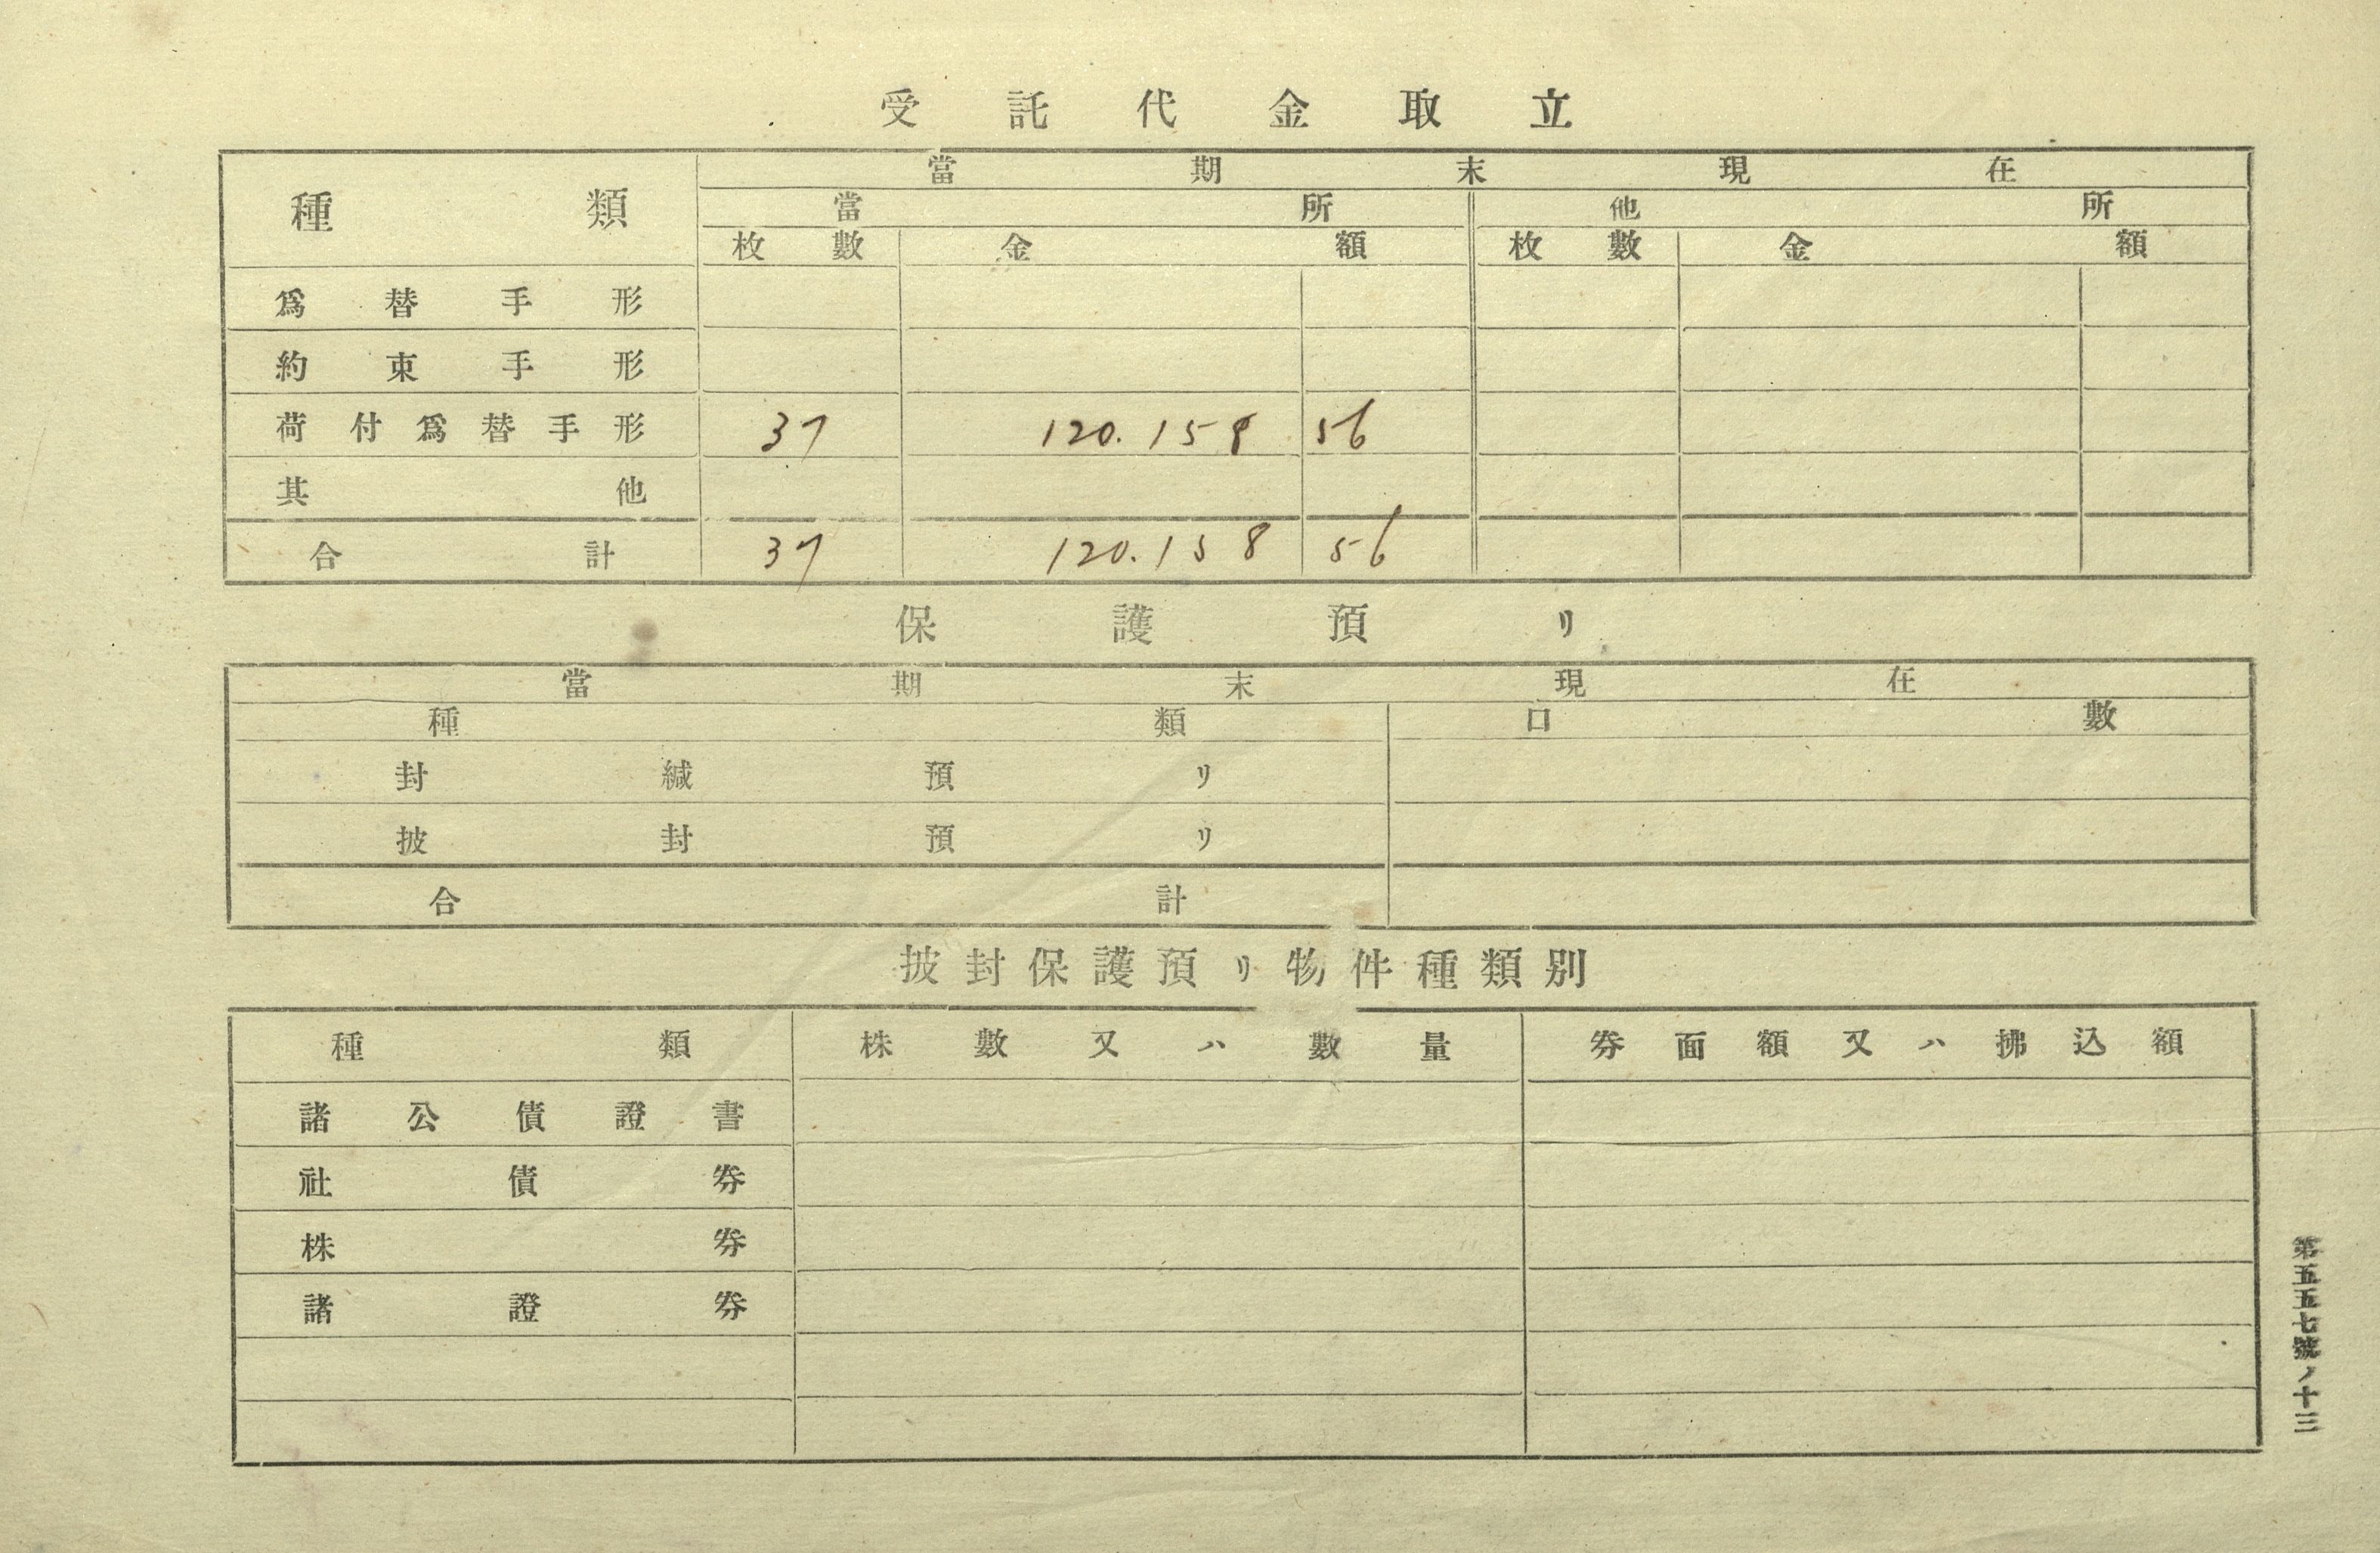 受託代金取立
種類 當期末現在
當所 他所
枚數 金額 枚數 金額
爲替手形
約束手形
荷付爲替手形 37 120.158 56
其他
合計 37 120.158 56
保護預リ
當期末現在
種類 口數
封緘預リ
披封預リ
合計
披封保護預リ物件種類別
種類 株數又ハ數量 券面額又ハ拂込額
諸公債證書
社債券
株券
諸證券
第五五七號ノ十三